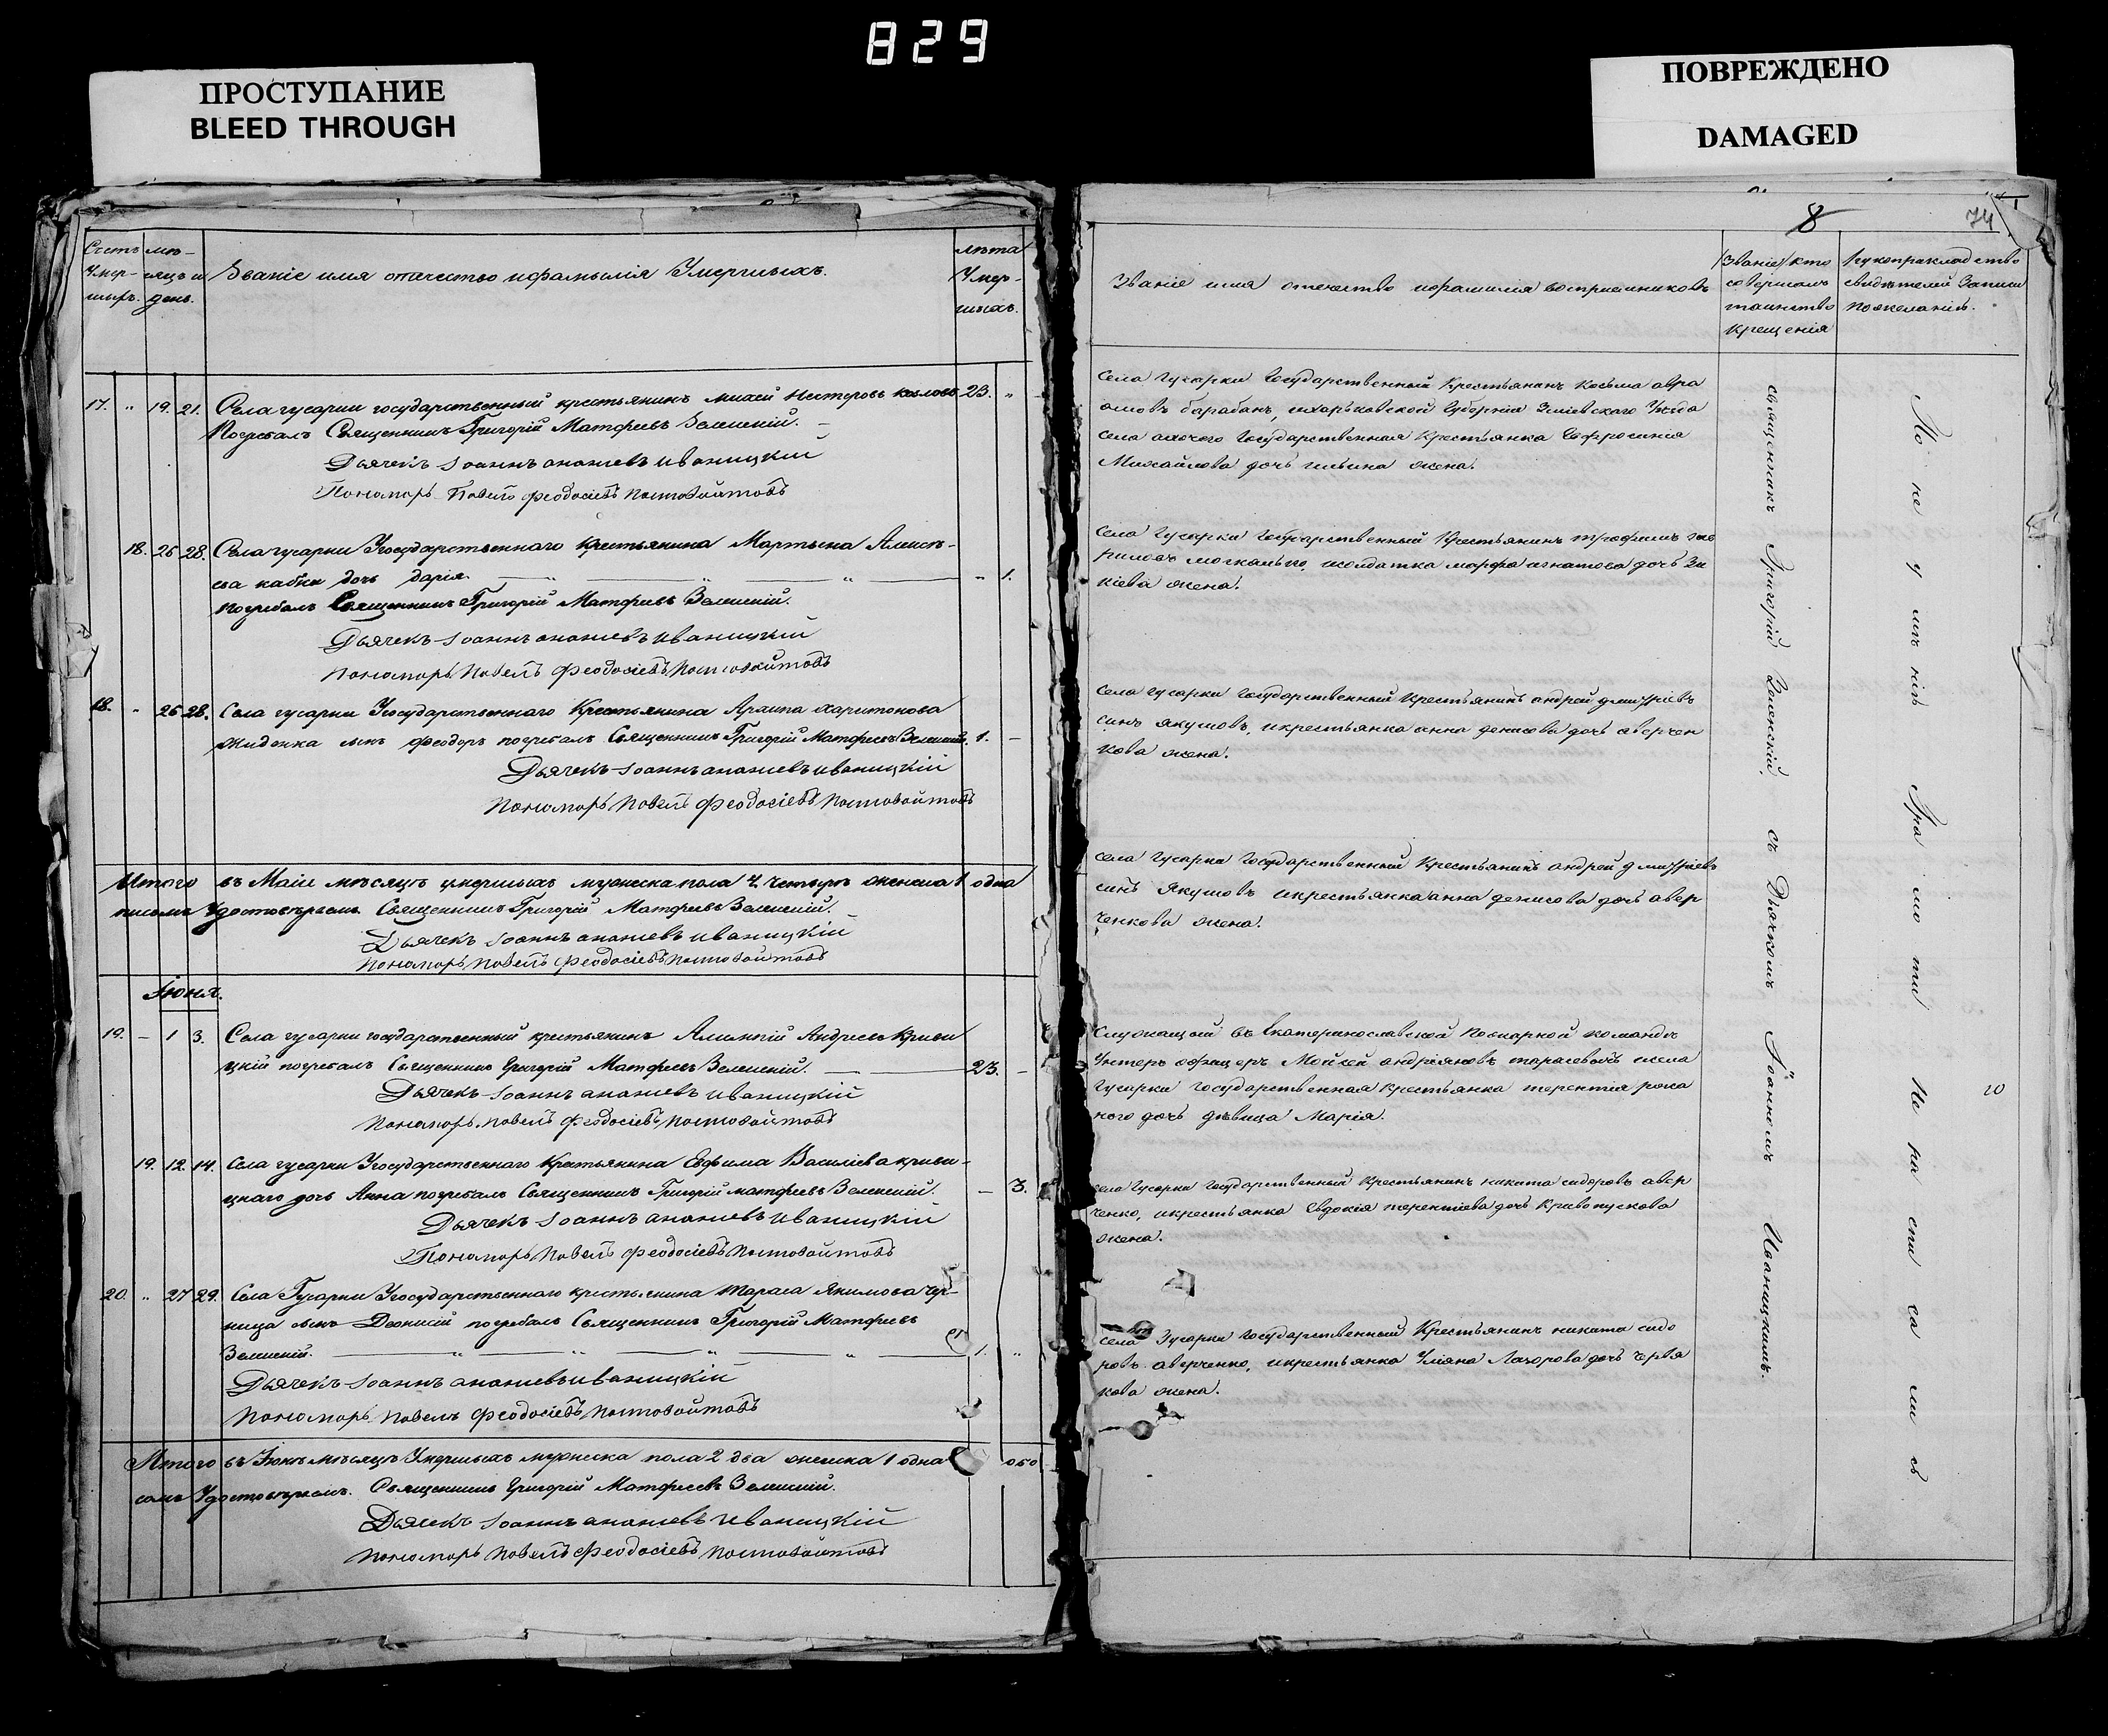 829
ПРОСТУПАНИЕ
BLEED THROUGH
ПОВРЕЖДЕНО
DAMAGED
Счетъ Умер-шихъ.
мѣ-сяцъ и день.
Званіе имя отечество и фамилія Умершихъ.
лѣта Умер-шихъ.
17. „ 19. 21. Села гусарки государственный крестьянинъ Нестеровъ 23. „
Погребалъ Священникъ Григорій Матфеевъ Зеленскій.
Дьячекъ Іоаннъ ананіевъ иваницкій
Пономарь Павелъ феодосіевъ
18. 26 28. Села гусарки Государственнаго Крестьянина Мартына Алексѣ-
ева дочь дарія. „ 1.
погребалъ Священникъ Григорій Матфеевъ Зеленскій.
Дьячекъ Іоаннъ ананіевъ иваницкій
пономарь Павелъ феодосіевъ
18. „ 26 28. Села гусарки Государственнаго Крестьянина Архипа харитонова
сынъ феодоръ погребалъ Священникъ Григорій Матфеевъ Зеленскій. 1. —
Дьячекъ Іоаннъ ананіевъ иваницкій
пономарь Павелъ феодосіевъ
Итого въ Маіи мѣсяцѣ умершихъ мужеска пола 4 четыре женска 1 одна
Удостовѣряемъ Священникъ Григорій Матфеевъ Зеленскій.
Дьячекъ Іоаннъ ананіевъ иваницкій
пономарь Павелъ феодосіевъ
Іюня.
19. — 1 3. Села гусарки государственный крестьянинъ Андреевъ Криви
цкій погребалъ Священникъ Григорій Матфеевъ Зеленскій. 23. —
Дьячекъ Іоаннъ ананіевъ иваницкій
пономарь павелъ феодосіевъ
19. 12. 14. Села гусарки Государственнаго Крестьянина Евфима Василіева криви-
цкаго дочь Анна погребалъ Священникъ Григорій матфеевъ Зеленскій. — 3.
Дьячекъ Іоаннъ ананіевъ иваницкій
Пономарь Павелъ феодосіевъ
20. „ 27 29. Села Гусарки Государственнаго крестьянина Тараса Якимова
сынъ Деонисій погребалъ Священникъ Григорій Матфеевъ
Зеленскій. 1. „
Дьячекъ Іоаннъ ананіевъ иваницкій
пономарь Павелъ феодосіевъ
Итого въ Іюнѣ мѣсяцѣ Умершихъ мужеска пола 2 два женска 1 одна
Удостовѣряемъ. Священникъ Григорій Матфеевъ Зеленскій.
Дьячекъ Іоаннъ ананіевъ иваницкій
пономарь Павелъ феодосіевъ
8
74
Званіе имя отечество и фамилія воспріемниковъ
Званіе кто совершалъ таинство крещенія
Рукоприкладство свидѣтелей Записи по желанію.
Села Гусарки Государственный Крестьянинъ Косьма авра
амовъ барабанъ, и харьковской Губерніи Зміевскаго Уѣзда
села Государственная Крестьянка Евфросинія
Михайлова дочь ильина жена.
Села Гусарки Государственный Крестьянинъ трофимъ гав
риловъ и солдатка марфа игнатова дочь
жена.
Села гусарки Государственный Крестьянинъ андрей дмитріевъ
синъ якушовъ, и крестьянка анна денисова дочь аверчен
кова жена.
села Гусарки Государственный Крестьянинъ андрей дмитріевъ
синъ Якушовъ и крестьянка анна денисова дочь авер
ченкова жена.
Служащый въ Екатеринославской Пожарной командѣ
Унтеръ офицеръ Мойсей андріяновъ тарасевичъ и села
Гусарки Государственная крестьянка терентия
дочь дѣвица Марія.
села Гусарки Государственный Крестьянинъ никита сидоровъ авер
ченко, и крестьянка Евдокія терентіева дочь Кривопускова
жена.
села Гусарки Государственный Крестьянинъ никита сидо
ровъ аверченко, и крестьянка Уліяна Лазорова дочь червя
кова жена.
священникъ Григорій Зеленскій съ Дьячкомъ Іоанномъ Иваницкимъ.
По не умѣнію Грамоти Неписались
20